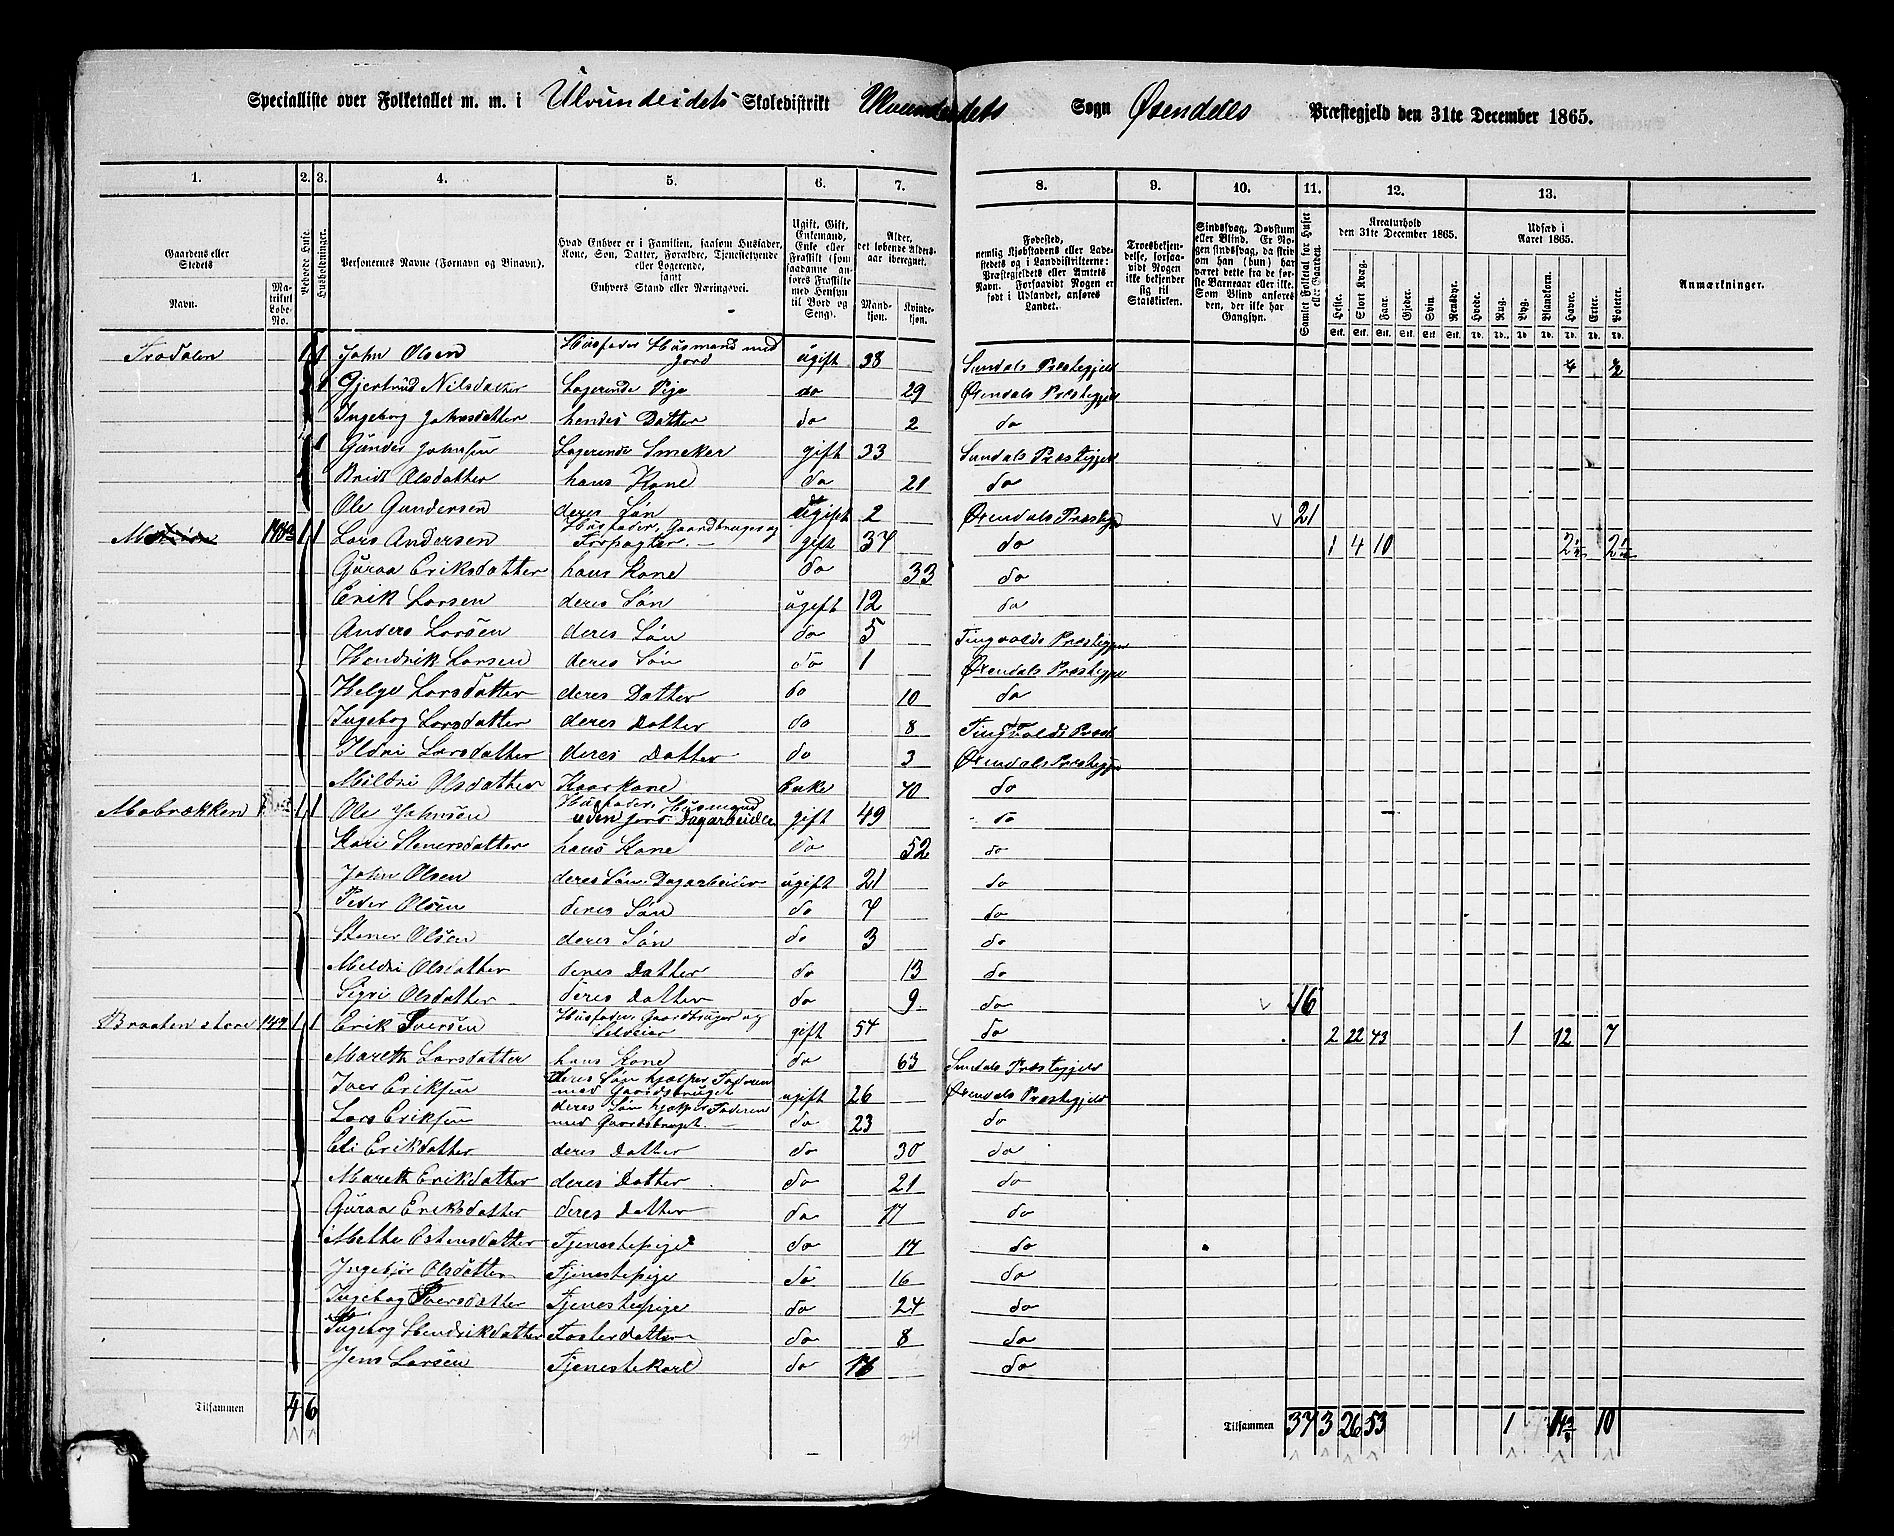 Specialliste over Folketallet m. m. i Ulvundeidets Skoledistrikt Ulvundeidets Sogn Øxendals Præstegjeld den 31te December 1865.
1. 2. 3. 4. 5. 6. 7. 8. 9. 10. 11. 12. 13.
Gaardens eller Stedets Navn. Matrikul Løbe-No. Beboede Huse. Husholdninger. Personernes Navne (Fornavn og Tilnavn). Hvad Enhver er i Familien, saasom Husfader, Kone, Søn, Datter, Forældre, Tjenestetyende eller Logerende, samt Enhvers Stand eller Næringsvei. Ugift, Gift, Enkemand, Enke eller Fraskilt (som saadanne anføres Fraskilte med Hensyn til Bord og Seng). Alder, det løbende Alders-aar iberegnet. Mand-kjøn. Kvinde-kjøn. Fødested, nemlig Kjøbstadens eller Ladestedets og i Landdistrikterne: Præstegjeldets eller Amtets Navn. Forsaavidt Nogen er født i Udlandet, anføres Landet. Troesbekjendelse, forsaavidt Nogen ikke bekjender sig til Statskirken. Sindssvag, Døvstum eller Blind. Er Nogen sindssvag, da skriv om han (hun) har været dette fra de første Barneaar eller ikke. Som Blind anføres den, der ikke har Gangsyn. Samlet Folketal for Huset eller Gaarden. Kreaturhold den 31te December 1865. Heste. Stort Kvæg. Faar. Gjeder. Sviin. Rensdyr. Udsæd i Aaret 1865. Hvede. Rug. Byg. Blandkorn. Havre. Erter. Poteter. Anmærkninger.
Trodalen 1 1 John Olsen Husfader Husmand med Jord ugift 38 Sundals Præstegjeld
1 Gjertrud Nilsdatter Logerende Pige do 29 Øxendals Præstegjeld
Ingeborg Johnsdatter hendes Datter do 2 do
1 Gunder Johnsen Logerende Smeker gift 33 Sundals Præstegjeld
Brit Olsdatter hans Kone do 21 do
Ole Gundersen deres Søn ugift 2 Øxendals Præstegj 21
1 1 Lars Andersen Husfader, Gaardbruger og Forpagter gift 37 do 1 4 10 2½
Guraa Eriksdatter hans Kone do 33 do
Erik Larsen deres Søn ugift 12 do
Anders Larsen deres Søn do 5 Tingvolds Præstegjeld
Hendrik Larsen deres Søn do 1 Øxendals Præstegjel
Helge Larsdatter deres Datter do 10 do
Ingebog Larsdatter deres Datter do 8 Tingvolds Præst
Ildri Larsdatter deres Datter do 3 Øxendals Præstegjel
Mildri Olsdatter Kaarkone Enke 70 do
Mobrækken 1 1 Ole Johnsen Husfader, Husmand uden Jord Dagarbeider gift 49 do
Kari Stenersdatter hans Kone do 52 do
John Olsen deres Søn Dagarbeider ugift 21 do
Peder Olsen deres Søn do 7 do
Stener Olsen deres Søn do 3 do
Mildri Olsdatter deres Datter do 13 do
Sigri Olsdatter deres Datter do 9 do 16
Braaten store 147 1 1 Erik Iversen Husfader, Gaardbruger og Selveier gift 54 do 2 22 43 1 12 7
Mareth Larsdatter hans Kone do 63 Sundals Præstegjeld
Iver Eriksen deres Søn hjælper Faderen med Gaardsbruget ugift 26 Øxendals Præstegjeld
Lars Eriksen deres Søn hjelper Faderen med Gaardsbruget do 23 do
Eli Erikdatter deres Datter do 30 do
Mareth Erikdatter deres Datter do 21 do
Guraa Eriksdatter deres Datter do 17 do
Mette Estensdatter Tjenestepige do 17 do
Ingebjør Olsdatter Tjenestepige do 16 do
Ingebog Iversdatter Tjenestepige do 24 do
Ingebog Hendrikdatter Fosterdatter do 8 do
Jens Larsen Tjenestekarl do 16 do
Tilsammen 4 6 Tilsammen 37 3 26 53 1 14¾ 10